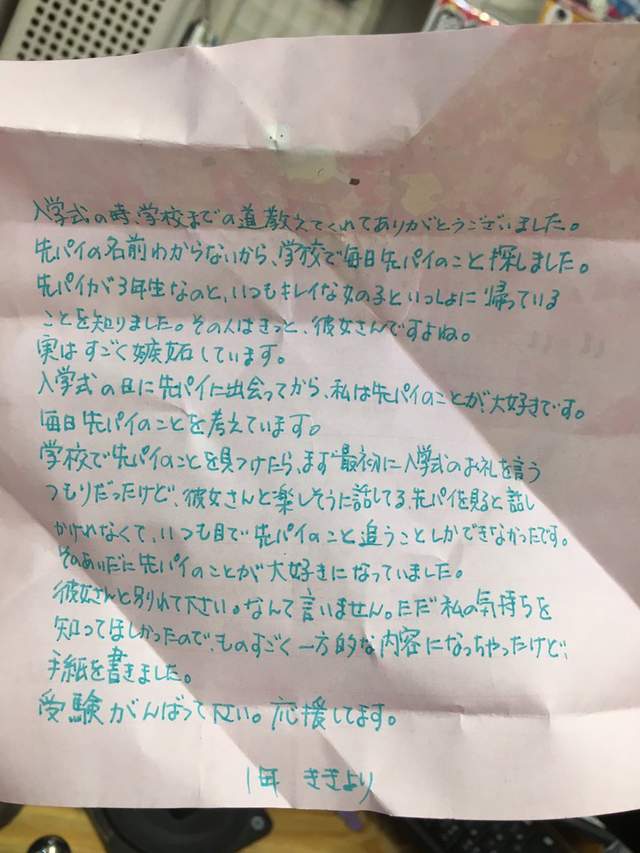 入学式の時、学校までの道教えてくれてありがとうございました。
先パイの名前わからないから、学校で毎日先パイのこと探しました。
先パイが3年生なのと、いつもキレイな女の子といっしょに帰っている
ことを知りました。その人はきっと、彼女さんですよね。
実はすごく嫉妬しています。
入学式の日に先パイに出会ってから、私は先パイのことが大好きです。
毎日先パイのことを考えています。
学校で先パイのことを見つけたら、まず最初に入学式のお礼を言う
つもりだったけど、彼女さんと楽しそうに話してる、先パイを見ると話し
かけれなくて、いつも目で先パイのこと追うことしかできなかったです。
そのあいだに先パイのことが大好きになっていました。
彼女さんと別れて下さい。なんて言いません。ただ私の気持ちを
知ってほしかったので、ものすごく一方的な内容になっちゃったけど、
手紙を書きました。
受験がんばって下さい。応援してます。
1年 ききより